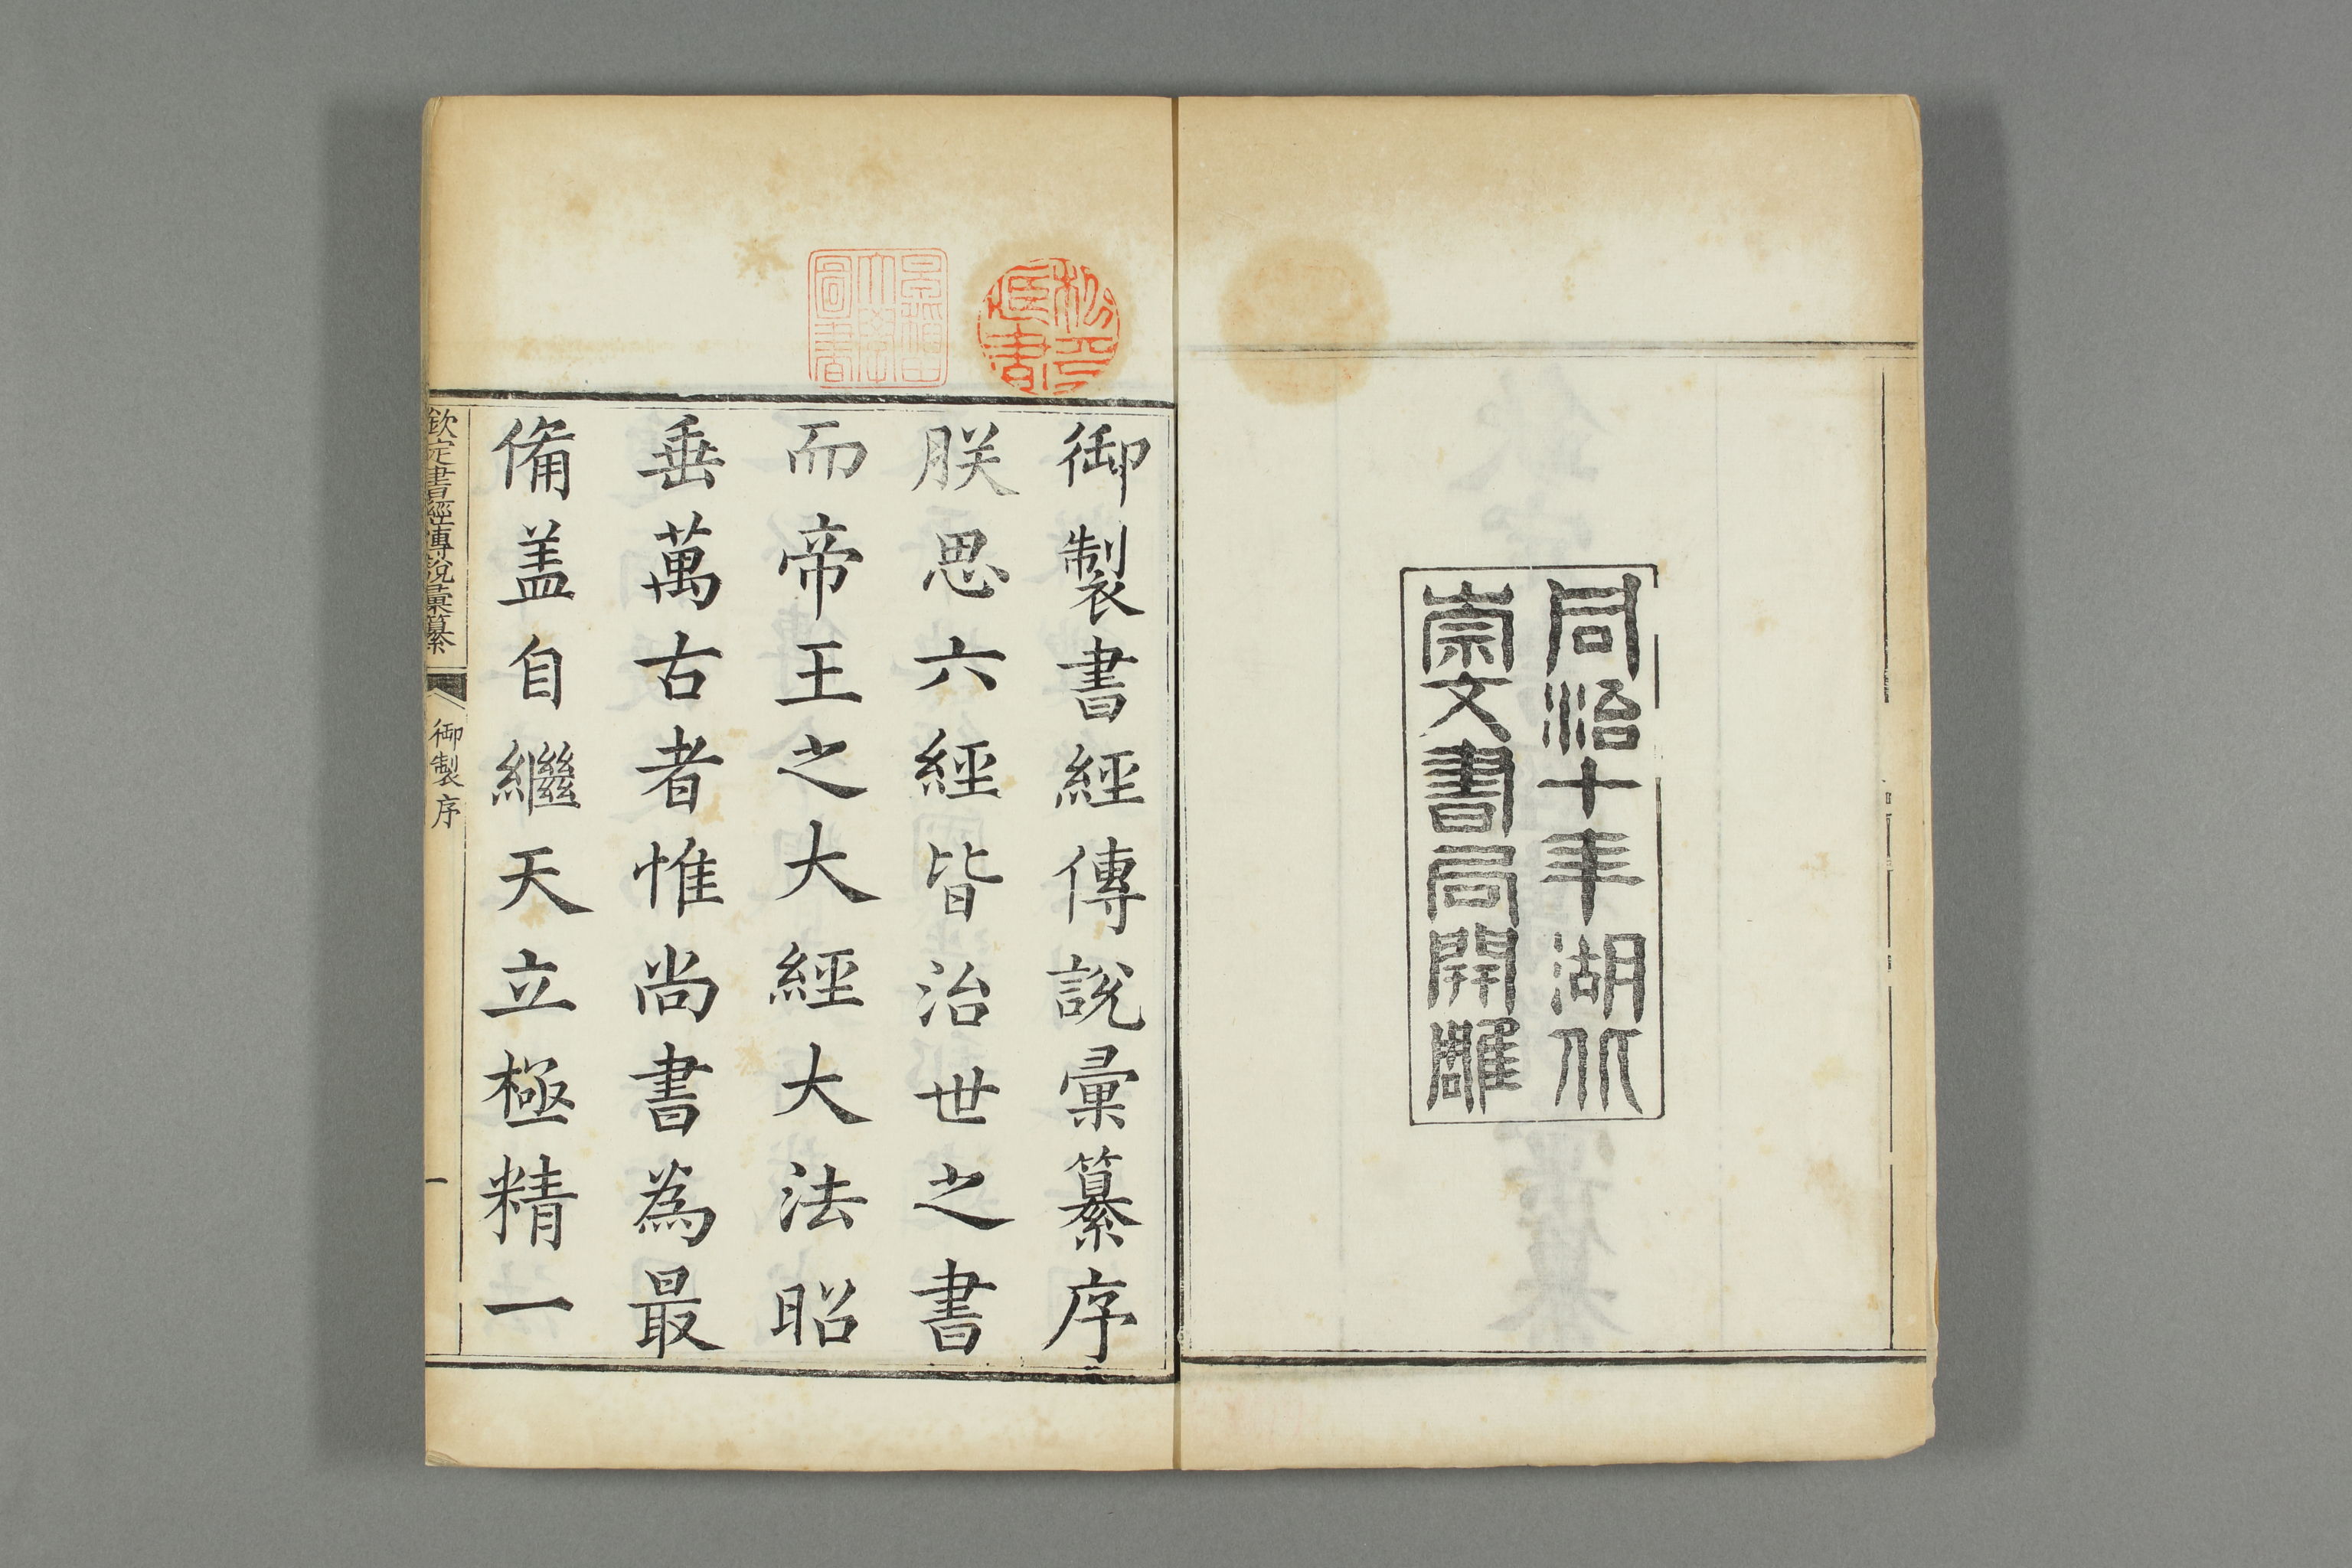 同治十年湖北
崇文書局開雕
松平
藏書
早稻田
大學
圖書
御製書經傳說彙纂序
朕思六經皆治世之書
而帝王之大經大法昭
垂萬古者惟尚書為最
備盖自繼天立極精一
欽定書經傳說彙纂
御製序
一